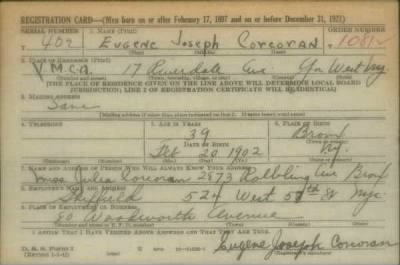 REGISTRATION CARD—(Men born on or after February 17, 1897 and on or before December 31, 1921)
SERIAL NUMBER 1. NAME (Print) ORDER NUMBER
402 EUGENE Joseph CORCORAN 10812
(First) (Middle) (Last)
2. PLACE OF RESIDENCE (Print)
Y.M.C.A. 17 Riverdale Ave Yon West. Ny.
(Number and street) (Town, township, village, or city) (County) (State)
[THE PLACE OF RESIDENCE GIVEN ON THE LINE ABOVE WILL DETERMINE LOCAL BOARD
JURISDICTION; LINE 2 OF REGISTRATION CERTIFICATE WILL BE IDENTICAL]
3. MAILING ADDRESS
Same
[Mailing address if other than place indicated on line 2. If same insert word same]
4. TELEPHONE 5. AGE IN YEARS 6. PLACE OF BIRTH
39 Bronx
DATE OF BIRTH
Feb 20 1902 Ny.
(Mo.) (Day) (Yr.)
7. NAME AND ADDRESS OF PERSON WHO WILL ALWAYS KNOW YOUR ADDRESS
Miss Julia Corcoran 2873 Ave Bronx
8. EMPLOYER'S NAME AND ADDRESS
Sheffield 524 West 57th St Nyc.
9. PLACE OF EMPLOYMENT OR BUSINESS
80 Woodworth Avenue
(Number and street or R. F. D. number) (Town) (County) (State)
I AFFIRM THAT I HAVE VERIFIED ABOVE ANSWERS AND THAT THEY ARE TRUE.
D. S. S. Form 1
Eugene Joseph Corcoran
(Registrant's signature)